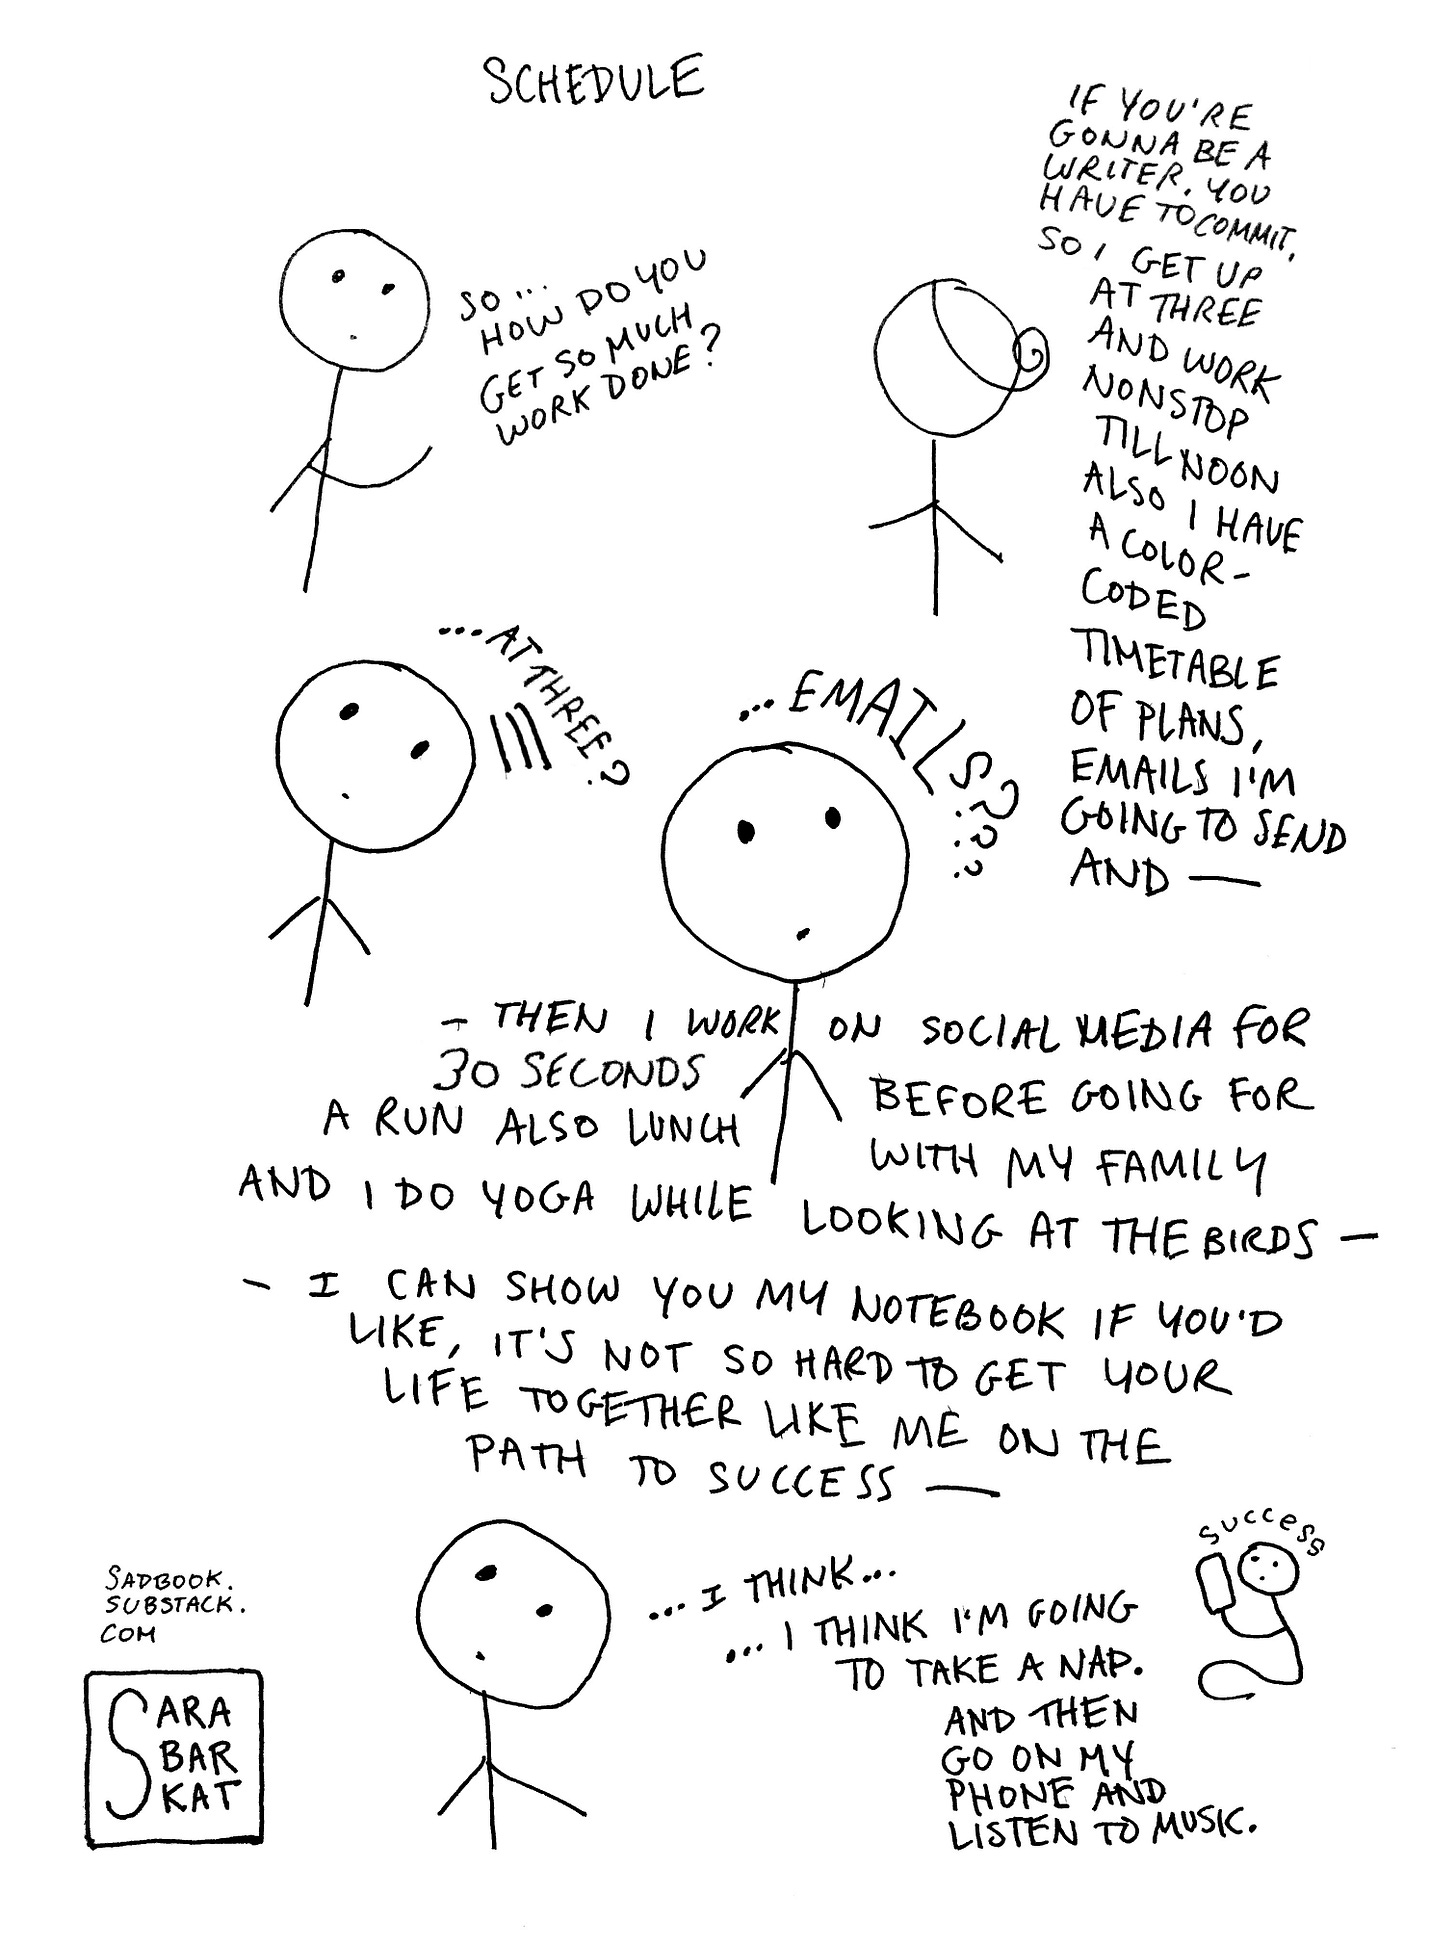 SCHEDULE
SO...
HOW DO YOU
GET SO MUCH
WORK DONE?
IF YOU'RE
GONNA BE A
WRITER, YOU
HAVE TO COMMIT.
SO I GET UP
AT THREE
AND WORK
NONSTOP
TILL NOON
ALSO I HAVE
A COLOR-
CODED
TIMETABLE
OF PLANS,
EMAILS I'M
GOING TO SEND
AND —
...AT THREE?
...EMAILS???
- THEN I WORK ON SOCIAL MEDIA FOR
30 SECONDS BEFORE GOING FOR
A RUN ALSO LUNCH WITH MY FAMILY
AND I DO YOGA WHILE LOOKING AT THE BIRDS —
- I CAN SHOW YOU MY NOTEBOOK IF YOU'D
LIKE, IT'S NOT SO HARD TO GET YOUR
LIFE TOGETHER LIKE ME ON THE
PATH TO SUCCESS —
...I THINK...
...I THINK I'M GOING
TO TAKE A NAP.
AND THEN
GO ON MY
PHONE AND
LISTEN TO MUSIC.
SUCCESS
SADBOOK.
SUBSTACK.
COM
SARA
BAR
KAT